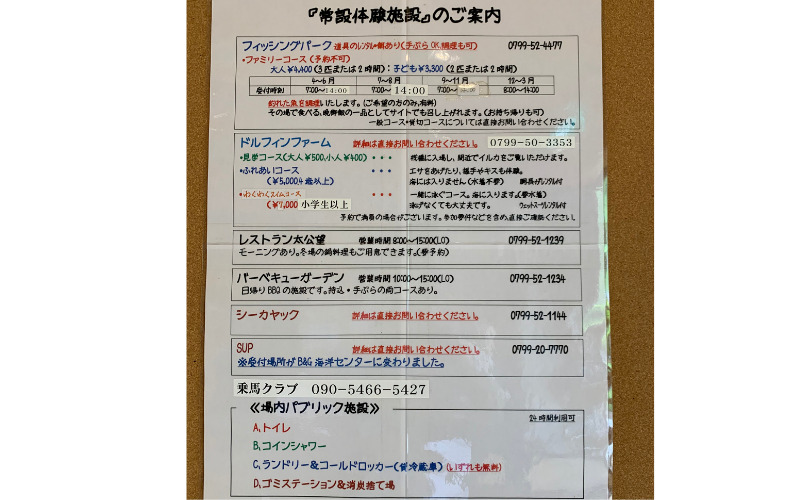 『常設体験施設』のご案内
フィッシングパーク 道具のレンタル・餌あり(手ぶらOK,調理も可) 0799-52-4477
・ファミリーコース(予約不可)
大人¥4,400(3匹または2時間):子ども¥3,300(2匹または2時間)
4〜6月 7〜8月 9〜11月 12〜3月
受付時刻 7:00〜14:00 7:00〜14:00 7:00〜 8:00〜14:00
釣れた魚を調理いたします。(ご希望の方のみ,有料)
その場で食べる、晩御飯の一品としてサイトでも召し上がれます。(お持ち帰りも可)
一般コース・貸切コースについては直接お問い合わせください。
ドルフィンファーム 詳細は直接お問い合わせください。 0799-50-3353
・見学コース(大人¥500,小人¥400)・・・ 桟橋に入場し、間近でイルカをご覧いただけます。
・ふれあいコース ・・・ エサをあげたり、握手やキスも体験。
(¥5,000,4歳以上) 海には入りません(水着不要) 胴長がレンタル付
・わくわくスイムコース ・・・ 一緒に泳ぐコース。海に入ります。(要水着)
(¥7,000 小学生以上 泳げなくても大丈夫です。 ウェットスーツレンタル付
予約で満員の場合がございます。参加要件などを含め,直接ご確認ください。
レストラン太公望 営業時間 8:00〜15:00(LO) 0799-52-1239
モーニングあり。冬場の鍋料理もご用意できます。(要予約)
バーベキューガーデン 営業時間 10:00〜15:00(LO) 0799-52-1234
日帰りBBQの施設です。持込・手ぶらの両コースあり。
シーカヤック 詳細は直接お問い合わせください。 0799-52-1144
SUP 詳細は直接お問い合わせください。 0799-20-7770
※受付場所がB&G海洋センターに変わりました。
乗馬クラブ 090-5466-5427
《場内パブリック施設》 24時間利用可
A,トイレ
B,コインシャワー
C,ランドリー&コールドロッカー(貸冷蔵庫)(いずれも無料)
D,ゴミステーション&消炭捨て場